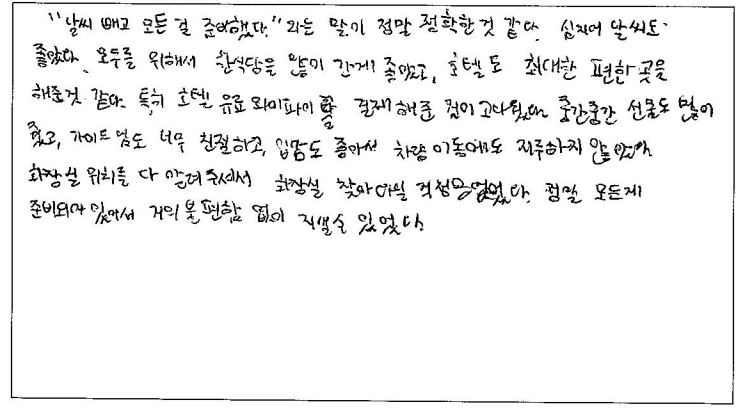 "날씨 빼고 모든 걸 준비했다."라는 말이 정말 정확한 것 같다. 심지어 날씨도
좋았다. 모두를 위해서 한식당을 많이 간게 좋았고, 호텔도 최대한 편한 곳을
해준것 같다. 특히 호텔 유료 와이파이를 결제해준 점이 고마웠다. 중간중간 선물도 많이
줬고, 가이드님도 너무 친절하고, 입담도 좋아서 차량 이동에도 지루하지 않았으며
화장실 위치를 다 알려주셔서 화장실 찾아다닐 걱정은 없었다. 정말 모든게
준비되어 있어서 거의 불편함 없이 지낼수 있었다.